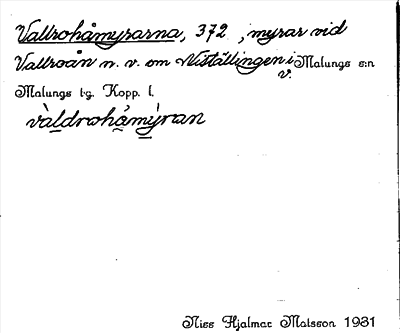 Vallrohåmyrarna, 372, myrar vid
Vallroån n. v. om Nittällingen i Malungs s:n
v.
Malungs t.g. Kopp. l.
vàldrohåmýran
Niss Hjalmar Matsson 1931